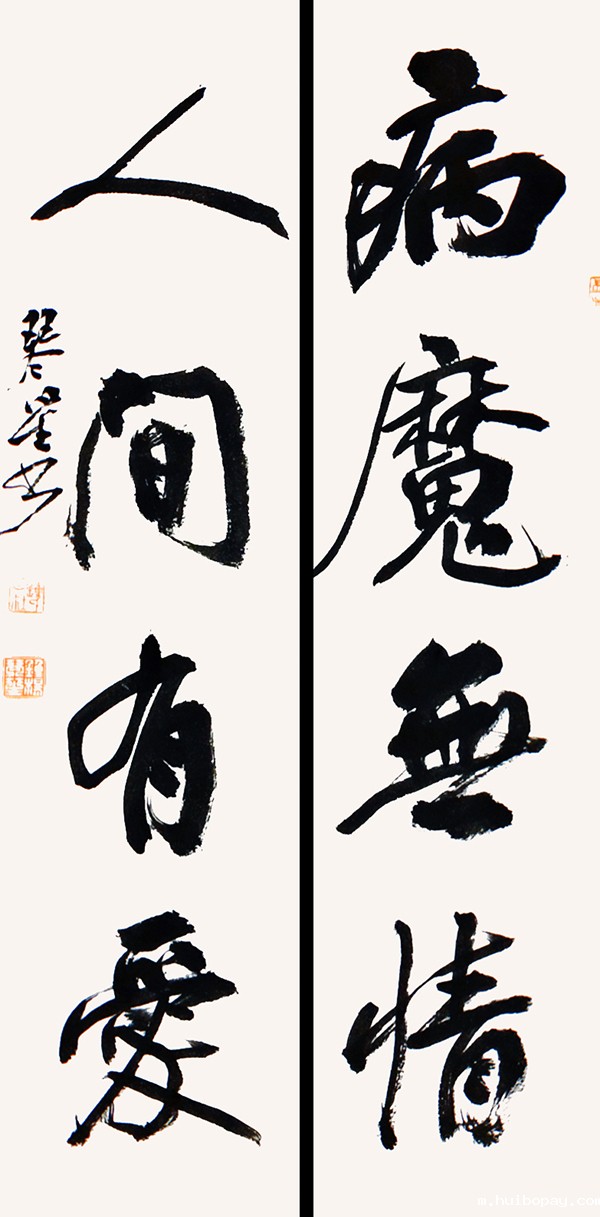 病魔無情
人间有愛
琴星书
m.huibopay.com